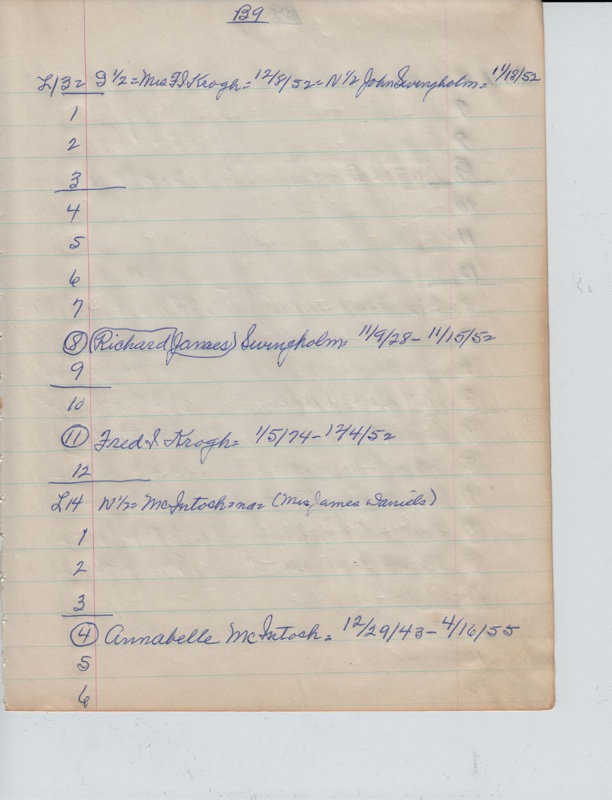 B9
L13= S 1/2 = Mrs F I Krogh = 12/8/52 = N 1/2 John Swingholm = 11/18/52
1
2
3
4
5
6
7
(8) (Richard (James) Swingholm = 11/9/28 - 11/15/52
9
10
(11) Fred I Krogh = 1/5/74 - 12/4/52
12
L14 N 1/2 = McIntosh = na = (Mrs James Daniels)
1
2
3
(4) Annabelle McIntosh = 12/29/43 - 4/16/55
5
6